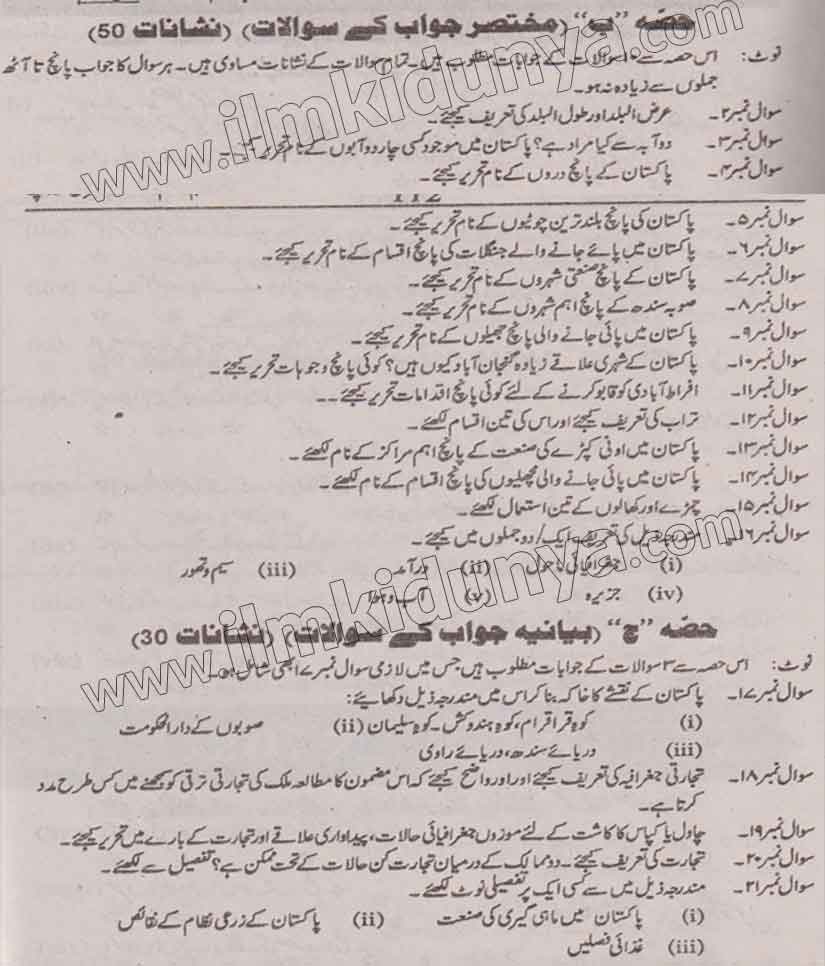 حصّہ "ب" (مختصر جواب کے سوالات) (نشانات 50)
نوٹ: اس حصہ سے ۱۰ سوالات کے جوابات مطلوب ہیں۔ تمام سوالات کے نشانات مساوی ہیں۔ ہر سوال کا جواب پانچ تا آٹھ
جملوں سے زیادہ نہ ہو۔
سوال نمبر ۲۔ عرض البلد اور طول البلد کی تعریف کیجئے۔
سوال نمبر ۳۔ دوآبہ سے کیا مراد ہے؟ پاکستان میں موجود کسی چار دوآبوں کے نام تحریر کیجئے۔
سوال نمبر ۴۔ پاکستان کے پانچ دروں کے نام تحریر کیجئے۔
سوال نمبر ۵۔ پاکستان کی پانچ بلند ترین چوٹیوں کے نام تحریر کیجئے۔
سوال نمبر ۶۔ پاکستان میں پائے جانے والے جنگلات کی پانچ اقسام کے نام تحریر کیجئے۔
سوال نمبر ۷۔ پاکستان کے پانچ صنعتی شہروں کے نام تحریر کیجئے۔
سوال نمبر ۸۔ صوبہ سندھ کے پانچ اہم شہروں کے نام تحریر کیجئے۔
سوال نمبر ۹۔ پاکستان میں پائی جانے والی پانچ جھیلوں کے نام تحریر کیجئے۔
سوال نمبر ۱۰۔ پاکستان کے شہری علاقے زیادہ گنجان آباد کیوں ہیں؟ کوئی پانچ وجوہات تحریر کیجئے۔
سوال نمبر ۱۱۔ افراط آبادی کو قابو کرنے کے لئے کوئی پانچ اقدامات تحریر کیجئے۔۔
سوال نمبر ۱۲۔ تراب کی تعریف کیجئے اور اس کی تین اقسام لکھئے۔
سوال نمبر ۱۳۔ پاکستان میں اونی کپڑے کی صنعت کے پانچ اہم مراکز کے نام لکھئے۔
سوال نمبر ۱۴۔ پاکستان میں پائی جانے والی مچھلیوں کی پانچ اقسام کے نام لکھئے۔
سوال نمبر ۱۵۔ چمڑے اور کھالوں کے تین استعمال لکھئے۔
سوال نمبر ۱۶۔ مندرجہ ذیل کی تعریف ایک/دو جملوں میں کیجئے۔
(i) جغرافیائی ماحول (ii) درآمد (iii) سیم و تھور
(iv) جزیرہ (v) آب و ہوا
حصّہ "ج" (بیانیہ جواب کے سوالات) (نشانات 30)
نوٹ: اس حصہ سے ۳ سوالات کے جوابات مطلوب ہیں جس میں لازمی سوال نمبر ۱۷ بھی شامل ہو۔
سوال نمبر ۱۷۔ پاکستان کے نقشے کا خاکہ بنا کر اس میں مندرجہ ذیل دکھایئے:
(i) کوہِ قراقرام، کوہِ ہندوکش۔ کوہ سلیمان (ii) صوبوں کے دارالحکومت
(iii) دریائے سندھ، دریائے راوی
سوال نمبر ۱۸۔ تجارتی جغرافیہ کی تعریف کیجئے اور اور واضح کیجئے کہ اس مضمون کا مطالعہ ملک کی تجارتی ترقی کو سمجھنے میں کس طرح مدد
کرتا ہے۔
سوال نمبر ۱۹۔ چاول یا کپاس کا کاشت کے لئے موزوں جغرافیائی حالات، پیداواری علاقے اور تجارت کے بارے میں تحریر کیجئے۔
سوال نمبر ۲۰۔ تجارت کی تعریف کیجئے۔ دو ممالک کے درمیان تجارت کن حالات کے تحت ممکن ہے؟ تفصیل سے لکھئے۔
سوال نمبر ۲۱۔ مندرجہ ذیل میں سے کسی ایک پر تفصیلی نوٹ لکھئے۔
(i) پاکستان میں ماہی گیری کی صنعت (ii) پاکستان کے زرعی نظام کے نقائص
(iii) غذائی فصلیں
www.ilmkidunya.com
www.ilmkidunya.com